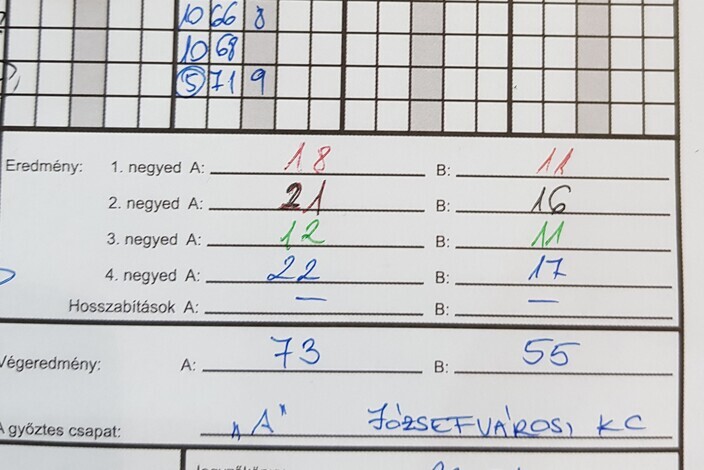 10 66 8
10 68
5 71 9
Eredmény: 1. negyed A: 18 B: 11
2. negyed A: 21 B: 16
3. negyed A: 12 B: 11
4. negyed A: 22 B: 17
Hosszabítások A: — B: —
Végeredmény: A: 73 B: 55
A győztes csapat: „A" JÓZSEFVÁROSI KC